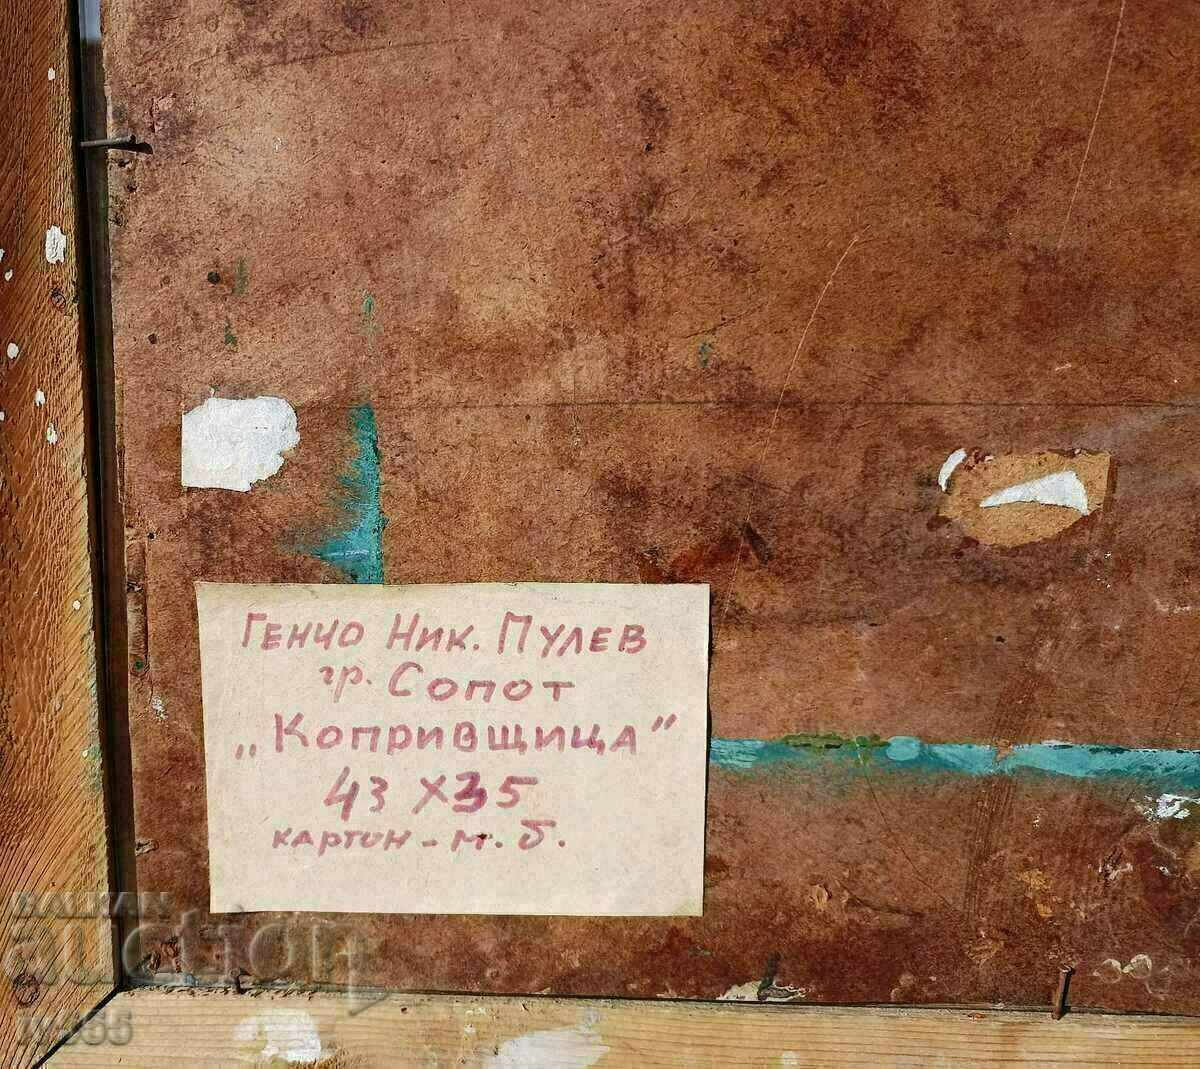 ГЕНЧО НИК. ПУЛЕВ
гр. СОПОТ
„КОПРИВЩИЦА"
43 X 35
картон - м. б.
BALKAN
auction